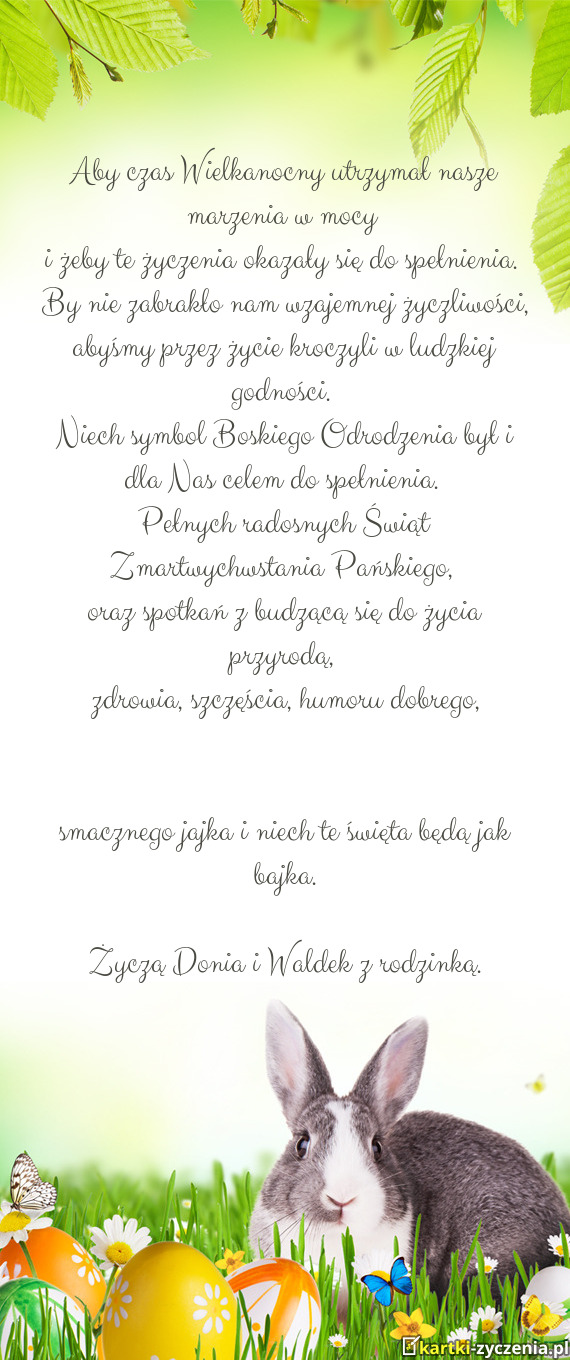 Aby czas Wielkanocny utrzymał nasze
marzenia w mocy
i żeby te życzenia okazały się do spełnienia.
By nie zabrakło nam wzajemnej życzliwości,
abyśmy przez życie kroczyli w ludzkiej
godności.
Niech symbol Boskiego Odrodzenia był i
dla Nas celem do spełnienia.
Pełnych radosnych Świąt
Zmartwychwstania Pańskiego,
oraz spotkań z budzącą się do życia
przyrodą,
zdrowia, szczęścia, humoru dobrego,
smacznego jajka i niech te święta będą jak
bajka.
Życzą Donia i Waldek z rodzinką.
kartki-zyczenia.pl